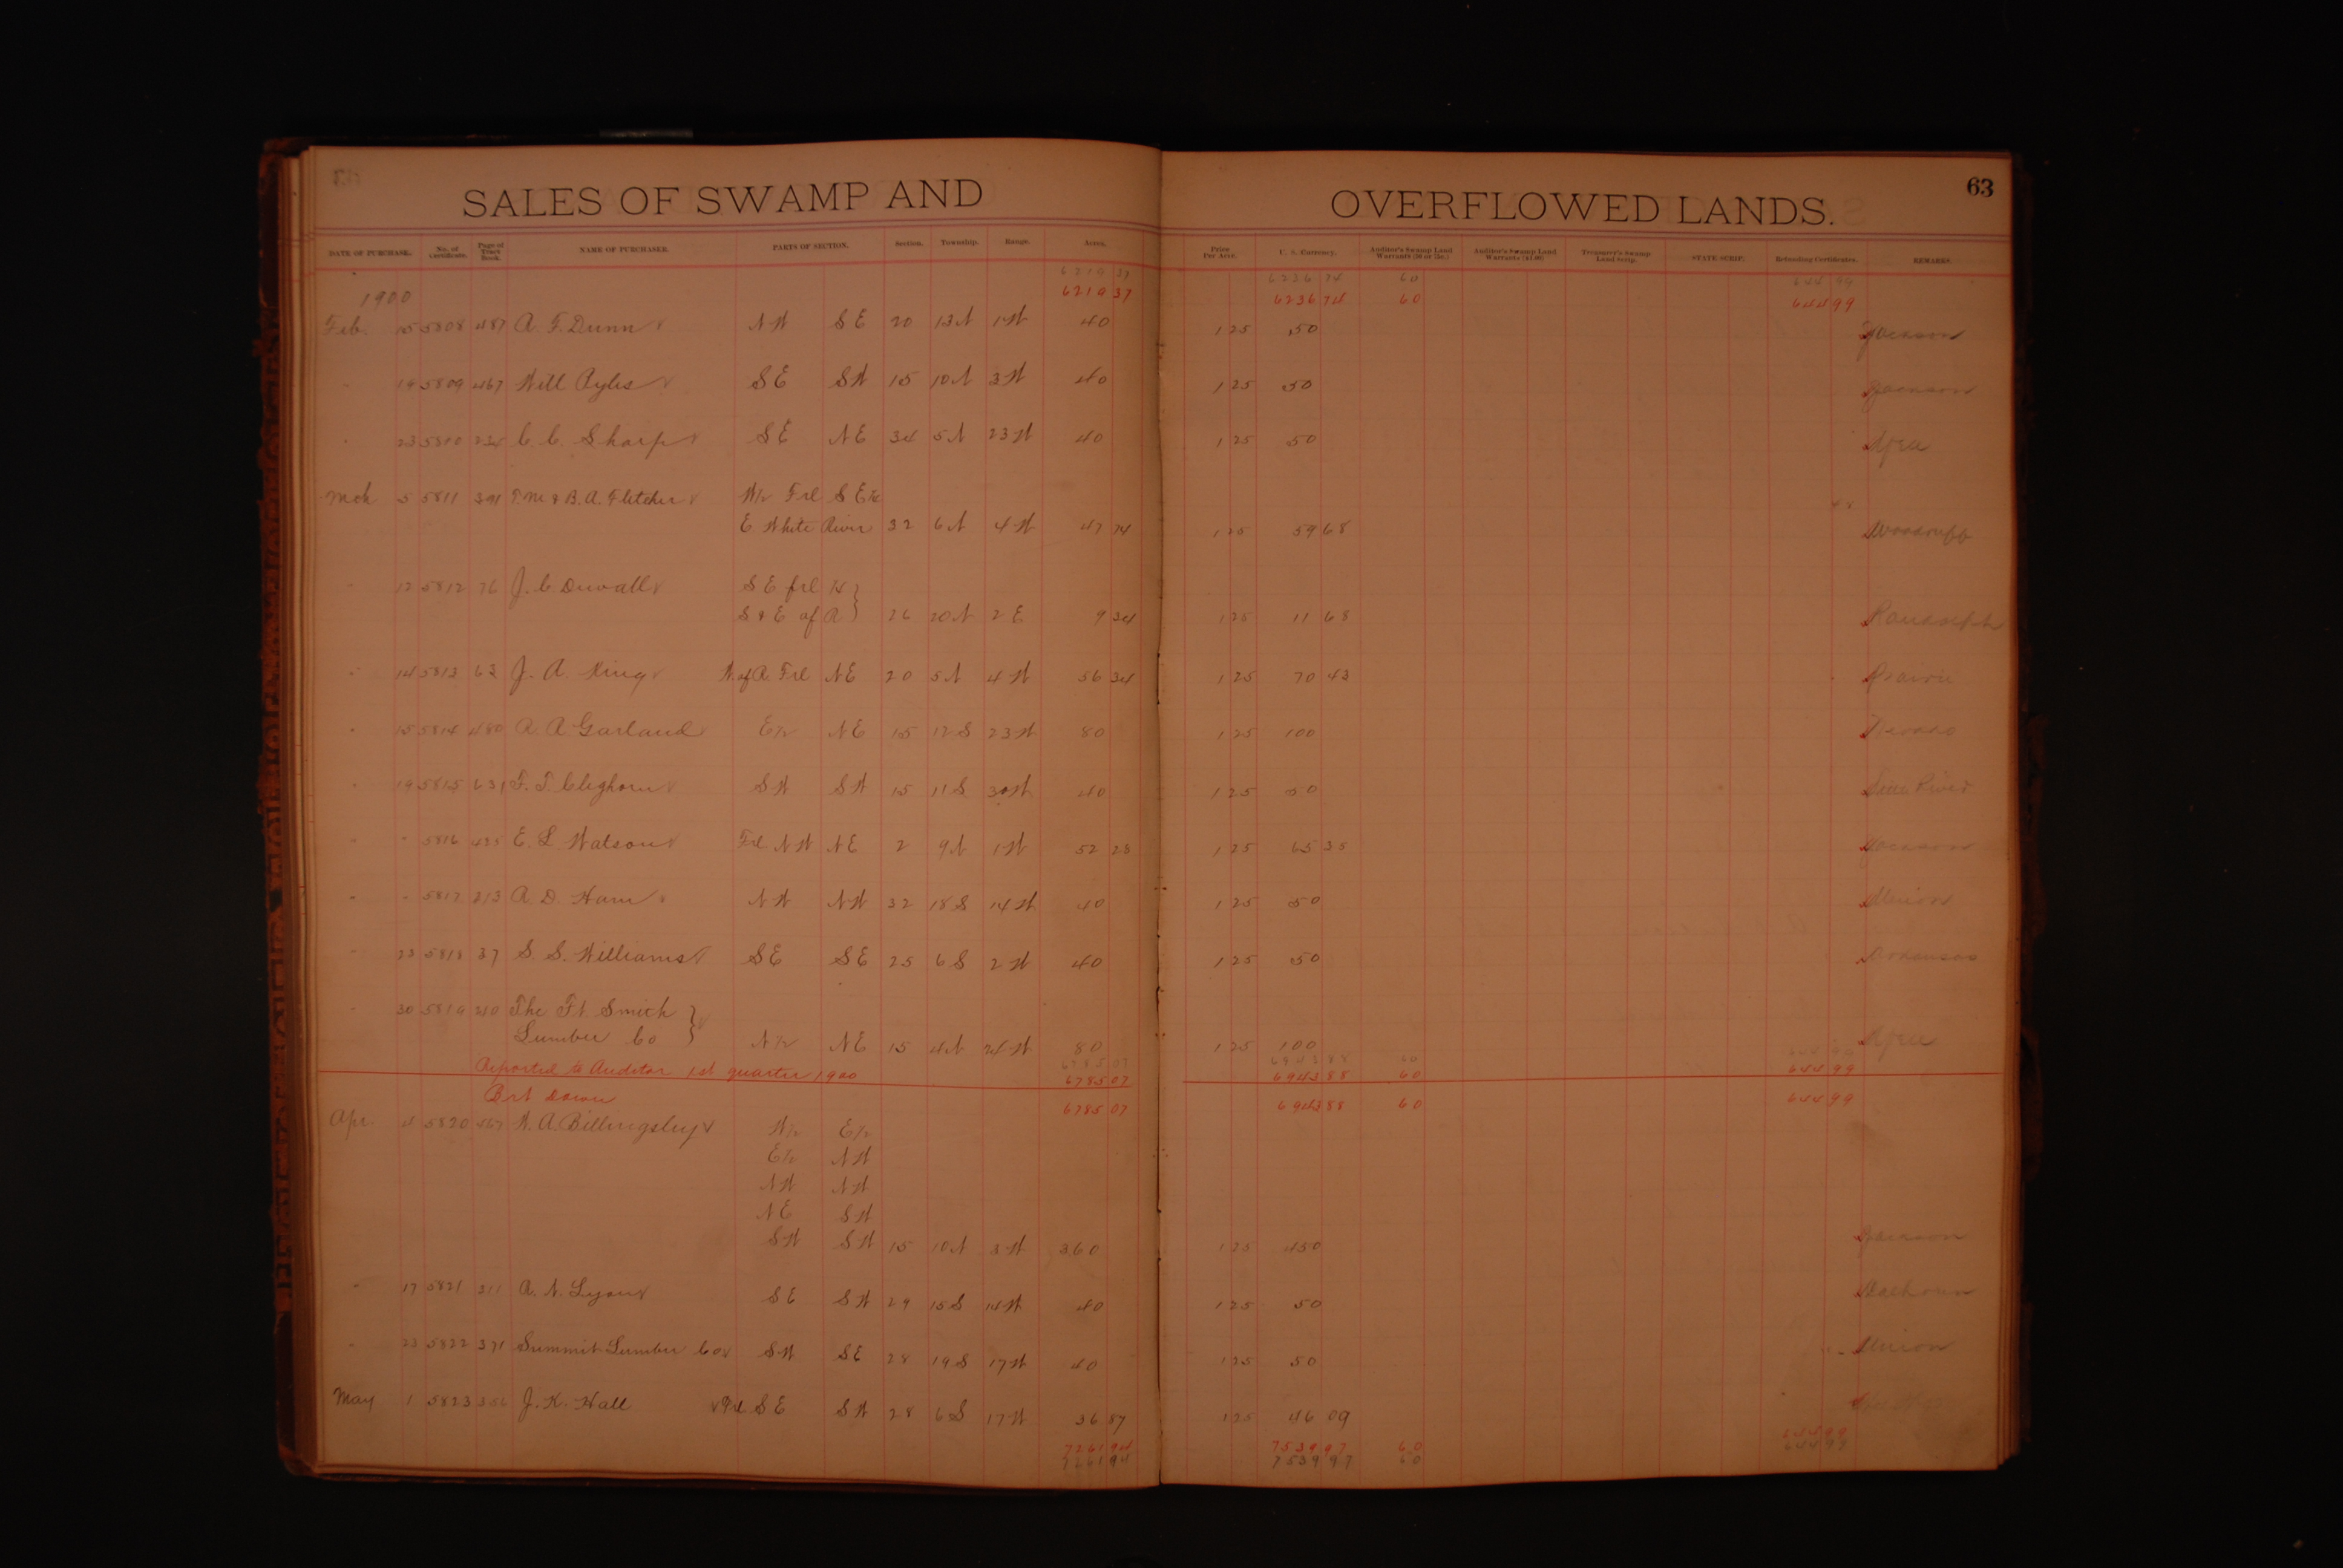 63
SALES OF SWAMP AND OVERFLOWED LANDS.
DATE OF PURCHASE. No. of Certificate. Page of Tract Book. NAME OF PURCHASER. PARTS OF SECTION. Section. Township. Range. Acres. Price Per Acre. U. S. Currency. Auditor's Swamp Land Warrants Auditor's Swamp Land Warrants Treasurer's Swamp Land Scrip. STATE SCRIP. Refunding Certificates. REMARKS.
6219 37 6236 74 60 644 99
1900 6219 37 6236 74 60 644 99
Feb. 15 5808 487 A. F. Dunn NW SE 20 13N 1W 40 1 25 50 Jackson
" 19 5809 467 Will Pyles SE SW 15 10N 3W 40 1 25 50 Jackson
" 23 5810 234 C. C. Sharp SE NE 34 5N 23W 40 1 25 50 Yell
Mch 5 5811 391 T. M. & B. A. Fletcher W½ Frl SE¼
E White River 32 6N 4W 47 74 1 25 59 68 Woodruff
" 12 5812 76 J. C Duvall SE frl ¼ }
S & E of R } 26 20N 2E 9 34 1 25 11 68 Randolph
" 14 5813 63 J. A. King W. of R. Frl NE 20 5N 4W 56 34 1 25 70 43 Prairie
" 15 5814 480 A. A. Garland E½ NE 15 12S 23W 80 1 25 100 Nevada
" 19 5815 631 F. T. Cleghorn SW SW 15 11S 30W 40 1 25 50 Little River
" " 5816 435 E. L. Watson Frl NW NE 2 9N 1W 52 28 1 25 65 35 Jackson
" " 5817 213 A. D. Ham NW NW 32 18S 14W 40 1 25 50 Union
" 23 5818 37 S. S. Williams SE SE 25 6S 2W 40 1 25 50 Arkansas
" 30 5819 250 The Ft. Smith }
Lumber Co } N½ NE 15 4N 24W 80 1 25 100 Yell
6785 07 6943 88 60 644 99
Reported to Auditor 1st quarter 1900 6785 07 6943 88 60 644 99
Brt Down 6785 07 6943 88 60 644 99
Apr. 4 5820 467 W. A. Billingsley W½ E½
E½ NW
NW NW
NE SW
SW SW 15 10N 3W 360 1 25 450 Jackson
" 17 5821 211 A. N. Lyon SE SW 29 15S 14W 40 1 25 50 Calhoun
" 23 5822 371 Summit Lumber Co SW SE 28 19S 17W 40 1 25 50 Union
May 1 5823 356 J. K. Hall Frl SE SW 28 6S 17W 36 87 1 25 46 09
7261 94 7539 97 60 644 99
7261 94 7539 97 60 644 99